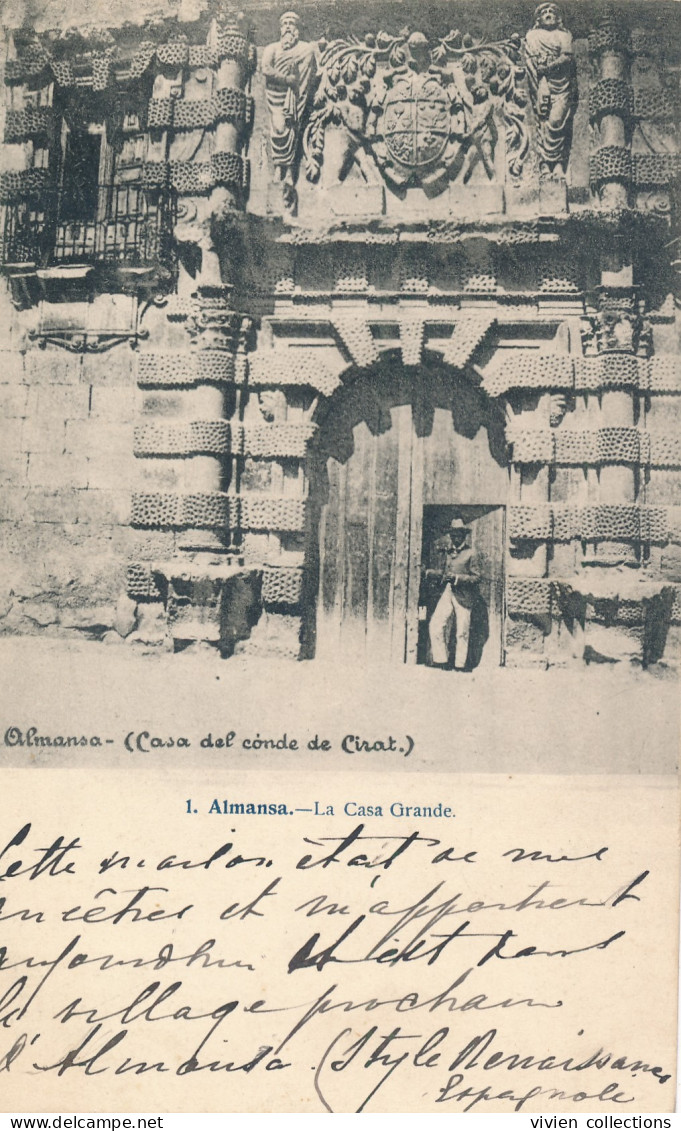 Almansa - (Casa del cónde de Cirat.)
1. Almansa.—La Casa Grande.
Cette maison était de mes
ancêtres et m'appartient
aujourd'hui Il est dans
la village prochain
d'Almansa (Style Renaissance
Espagnole
vivien collections